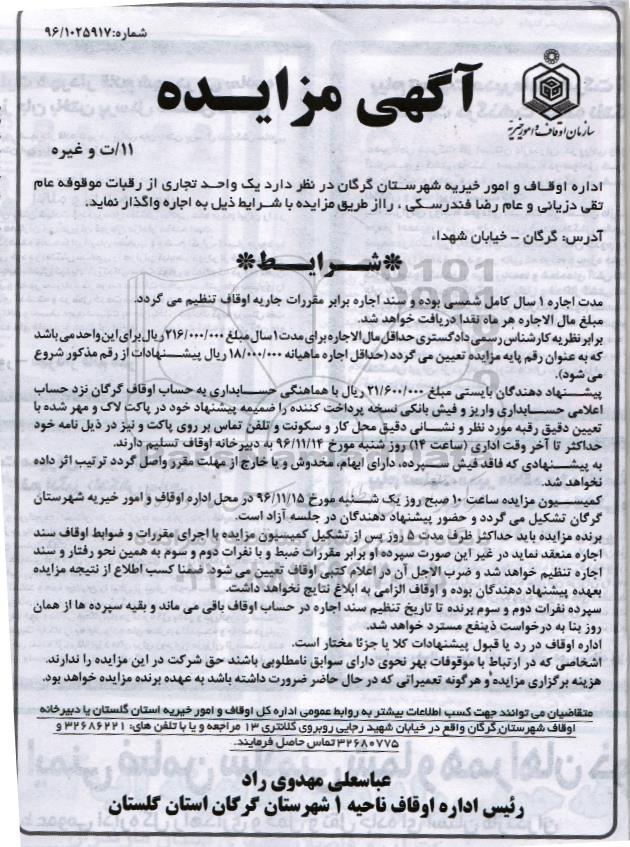 شماره: ۹۶/۱۰۲۵۹۱۷
سازمان اوقاف و امور خیریه
آگهی مزایده
۱۱/ت و غیره
اداره اوقاف و امور خیریه شهرستان گرگان در نظر دارد یک واحد تجاری از رقبات موقوفه عام
تقی دزیانی و عام رضا فندرسکی ، را از طریق مزایده با شرایط ذیل به اجاره واگذار نماید.
آدرس: گرگان - خیابان شهدا،
❋شرایط❋
مدت اجاره ۱ سال کامل شمسی بوده و سند اجاره برابر مقررات جاریه اوقاف تنظیم می گردد.
مبلغ مال الاجاره هر ماه نقدا دریافت خواهد شد.
برابر نظریه کارشناس رسمی دادگستری حداقل مال الاجاره برای مدت ۱ سال مبلغ ۲۱۶/۰۰۰/۰۰۰ ریال برای این واحد می باشد
که به عنوان رقم پایه مزایده تعیین می گردد (حداقل اجاره ماهیانه ۱۸/۰۰۰/۰۰۰ ریال پیشنهادات از رقم مذکور شروع
می شود).
پیشنهاد دهندگان بایستی مبلغ ۲۱/۶۰۰/۰۰۰ ریال با هماهنگی حسابداری به حساب اوقاف گرگان نزد حساب
اعلامی حسابداری واریز و فیش بانکی نسخه پرداخت کننده را ضمیمه پیشنهاد خود در پاکت لاک و مهر شده با
تعیین دقیق رقبه مورد نظر و نشانی دقیق محل کار و سکونت و تلفن تماس بر روی پاکت و نیز در ذیل نامه خود
حداکثر تا آخر وقت اداری (ساعت ۱۴) روز شنبه مورخ ۹۶/۱۱/۱۴ به دبیرخانه اوقاف تسلیم دارند.
به پیشنهادی که فاقد فیش سپرده، دارای ابهام، مخدوش و یا خارج از مهلت مقرر واصل گردد ترتیب اثر داده
نخواهد شد.
کمیسیون مزایده ساعت ۱۰ صبح روز یک شنبه مورخ ۹۶/۱۱/۱۵ در محل اداره اوقاف و امور خیریه شهرستان
گرگان تشکیل می گردد و حضور پیشنهاد دهندگان در جلسه آزاد است.
برنده مزایده باید حداکثر ظرف مدت ۵ روز پس از تشکیل کمیسیون مزایده با اجرای مقررات و ضوابط اوقاف سند
اجاره منعقد نماید در غیر این صورت سپرده او برابر مقررات ضبط و با نفرات دوم و سوم به همین نحو رفتار و سند
اجاره تنظیم خواهد شد و ضرب الاجل آن در اعلام کتبی اوقاف تعیین می شود. ضمنا کسب اطلاع از نتیجه مزایده
بعهده پیشنهاد دهندگان بوده و اوقاف الزامی به ابلاغ نتایج نخواهد داشت.
سپرده نفرات دوم و سوم برنده تا تاریخ تنظیم سند اجاره در حساب اوقاف باقی می ماند و بقیه سپرده ها از همان
روز بنا به درخواست ذینفع مسترد خواهد شد.
اداره اوقاف در رد یا قبول پیشنهادات کلا یا جزئا مختار است.
اشخاصی که در ارتباط با موقوفات بهر نحوی دارای سوابق نامطلوبی باشند حق شرکت در این مزایده را ندارند.
هزینه برگزاری مزایده و هرگونه تعمیراتی که در حال حاضر ضرورت داشته باشد به عهده برنده مزایده خواهد بود.
متقاضیان می توانند جهت کسب اطلاعات بیشتر به روابط عمومی اداره کل اوقاف و امور خیریه استان گلستان یا دبیرخانه
اوقاف شهرستان گرگان واقع در خیابان شهید رجایی روبروی کلانتری ۱۳ مراجعه و یا با تلفن های: ۳۲۶۸۶۲۲۱ و
۳۲۶۸۰۷۷۵ تماس حاصل فرمایند.
عباسعلی مهدوی راد
رئیس اداره اوقاف ناحیه ۱ شهرستان گرگان استان گلستان